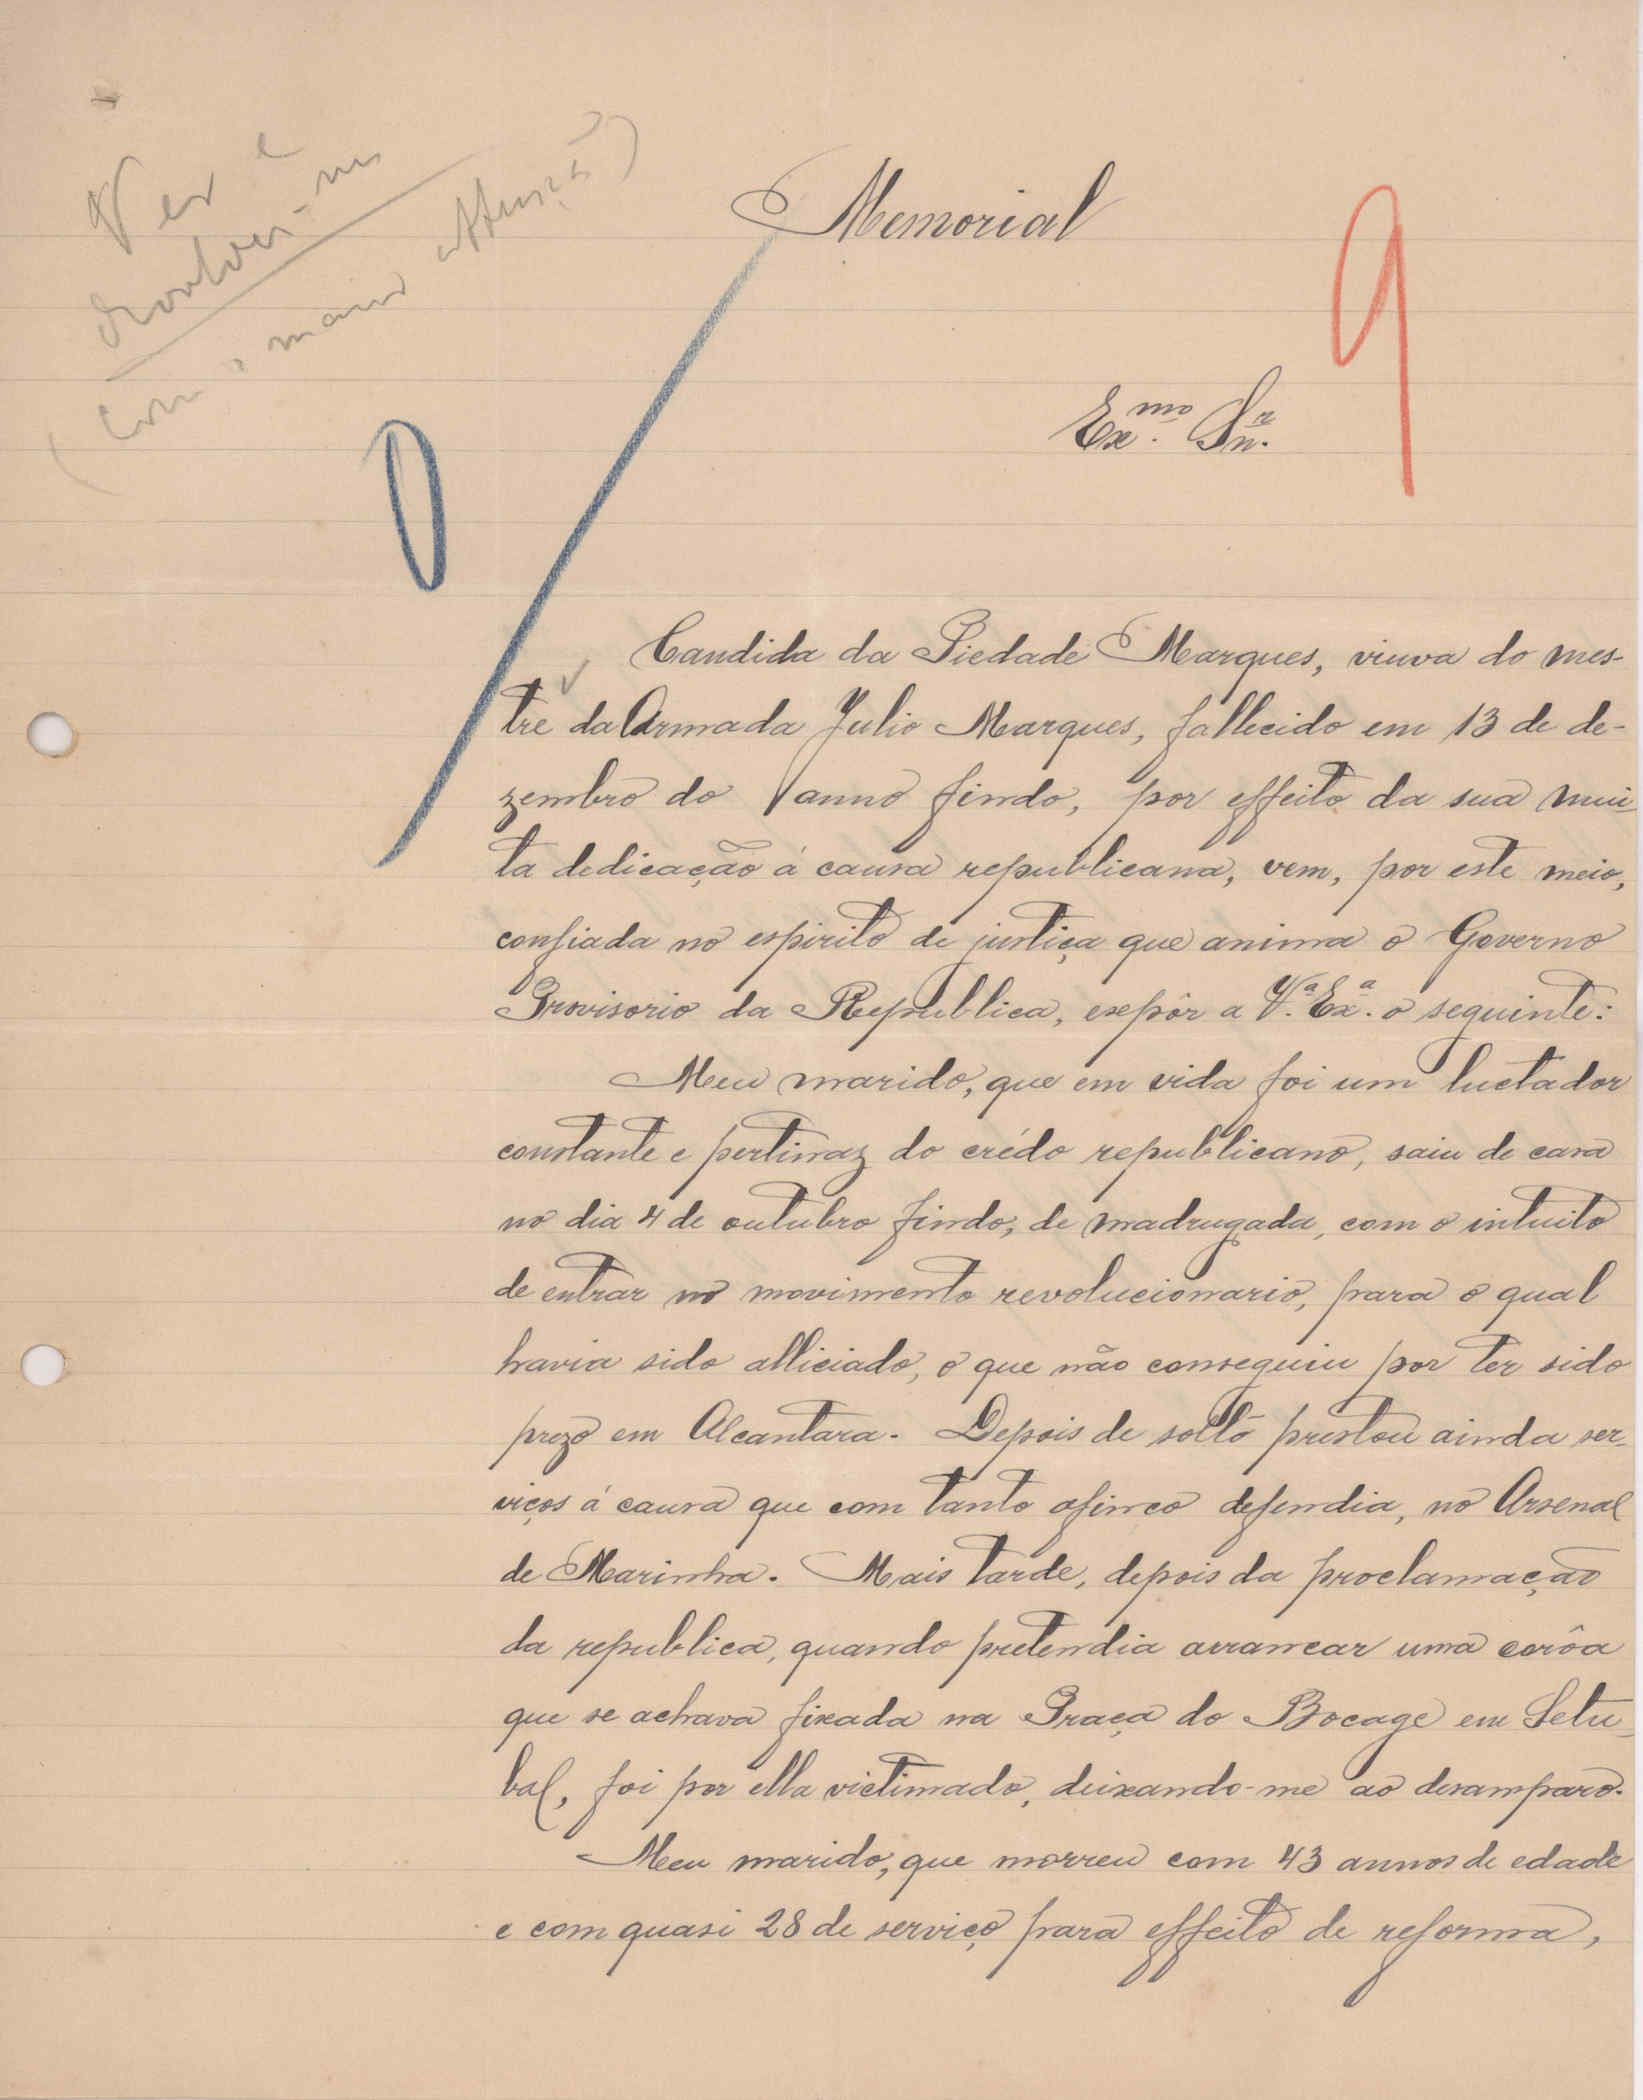 Ver e
(com a maior attenção)
Memorial
9
Ex.mo Snr.
Candida da Piedade Marques, viuva do mes-
tre da Armada Julio Marques, fallecido em 13 de de-
zembro do anno findo, por effeito da sua mui
ta dedicação á causa republicana, vem, por este meio,
confiada no espirito de justiça que anima o Governo
Provisorio da Republica, expôr a V.a Ex.a o seguinte:
Meu marido, que em vida foi um luctador
constante e pertinaz do crédo republicano, saiu de casa
no dia 4 de outubro findo, de madrugada, com o intuito
de entrar no movimento revolucionario, para o qual
havia sido alliciado, o que não conseguiu por ter sido
prezo em Alcantara. Depois de solto prestou ainda ser-
viços á causa que com tanto afinco defendia, no Arsenal
de Marinha. Mais tarde, depois da proclamação
da republica, quando pretendia arrancar uma corôa
que se achava fixada na Praça do Bocage em Setu-
bal, foi por ella victimado, deixando-me ao desamparo.
Meu marido, que morreu com 43 annos de edade
e com quasi 28 de serviço para effeito de reforma,